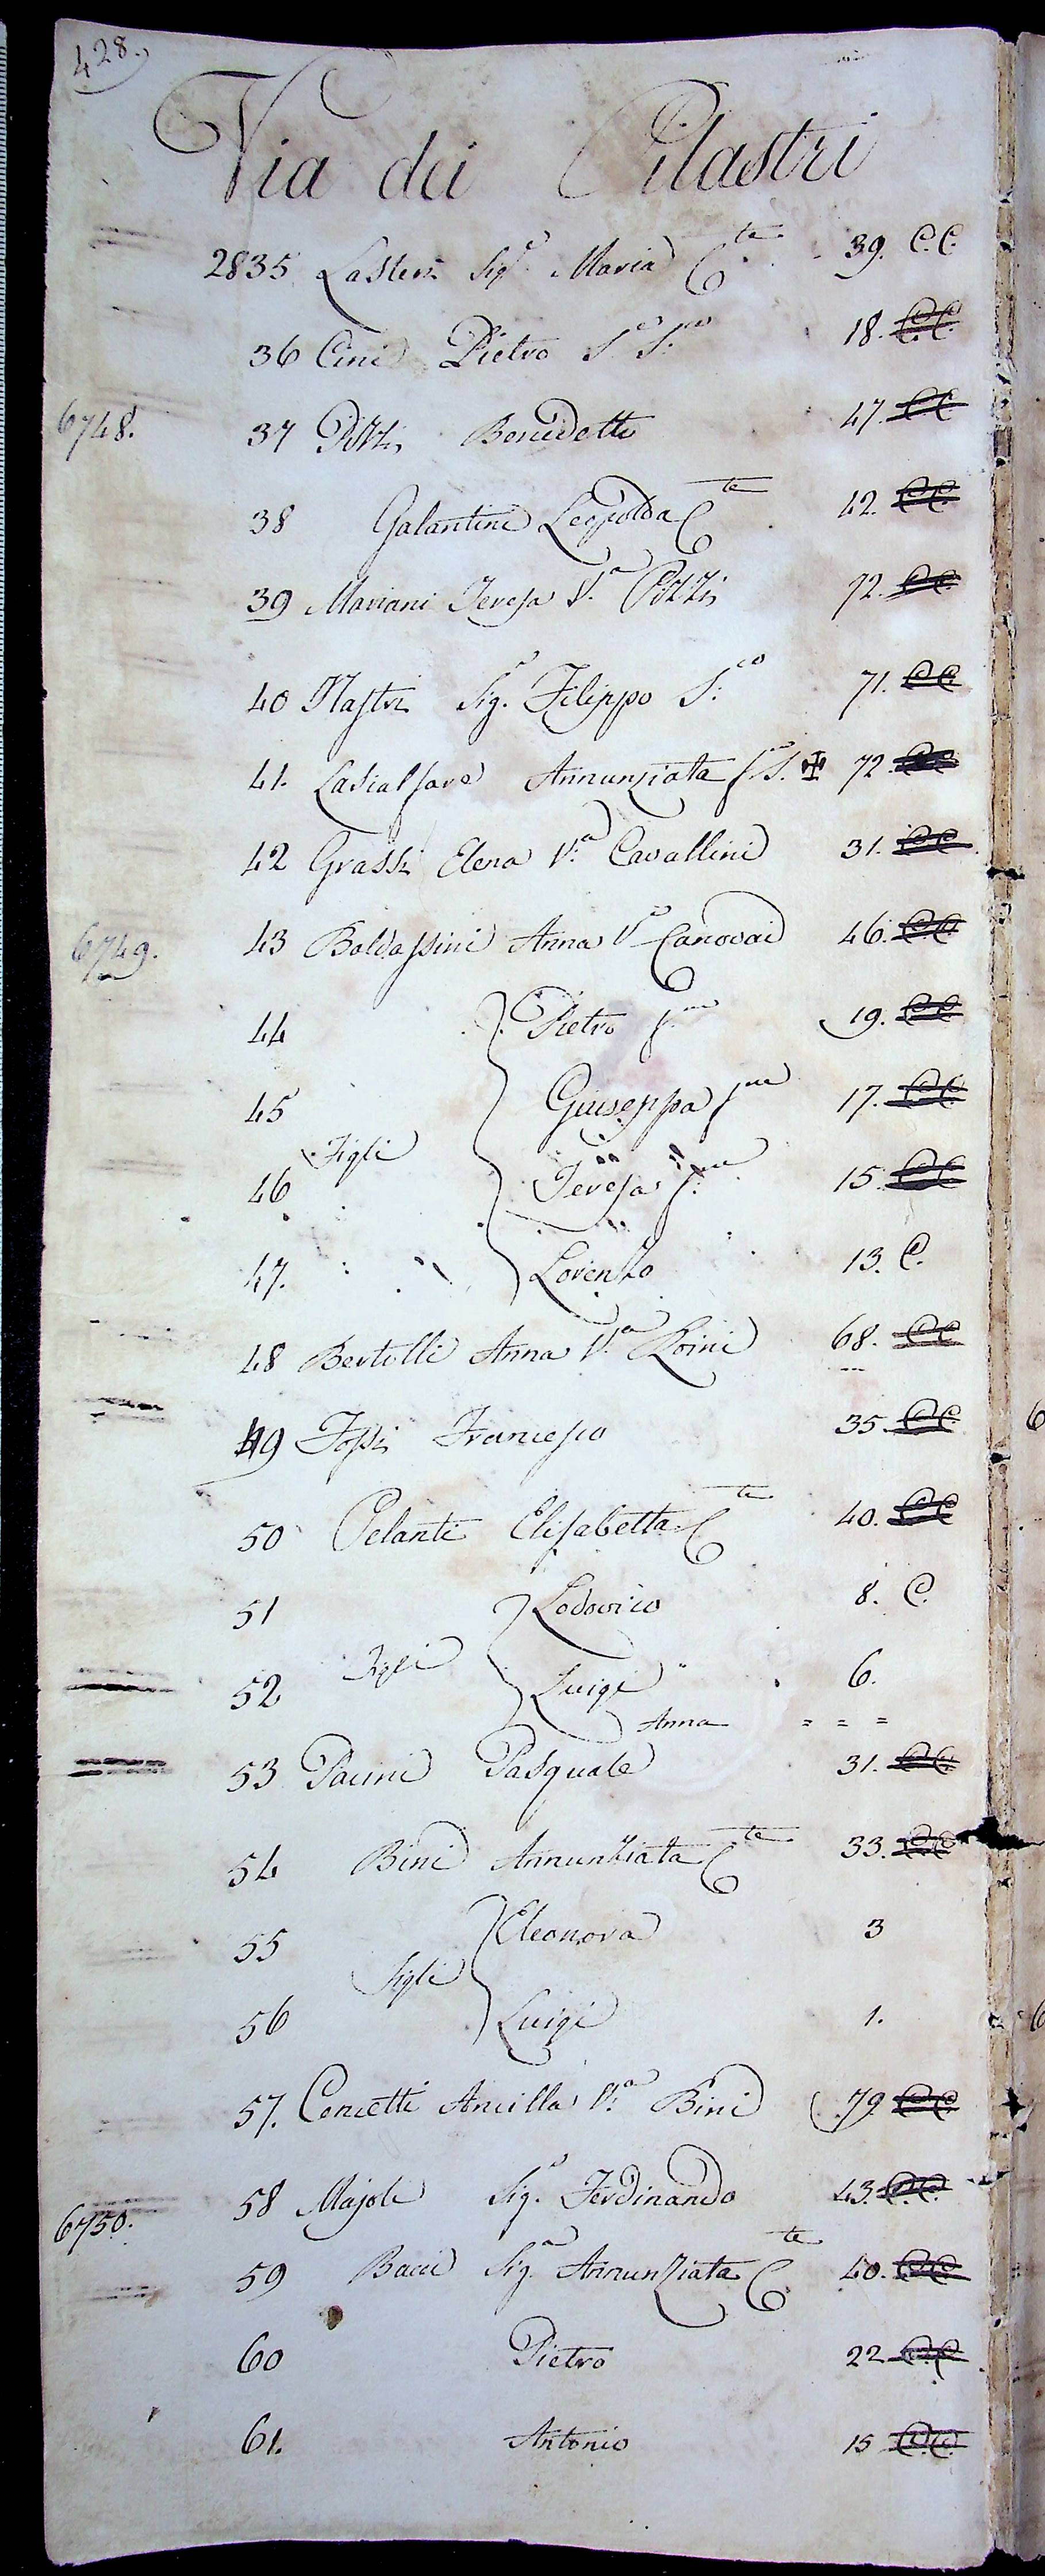 428.
Via dei Pilastri
2835 Lastri Sig.a Maria C.te 39. C.C.
36 Cini Pietro S. S.co 18. C.C.
6748. 37 Pozzi Benedetto 47. C.C.
38 Galantini Leopolda C.te 42. C.C.
39 Mariani Teresa V.a Pozzi 72. C.C.
40 Nastri Sig.r Filippo S.co 71. C.C.
41. Annunziata S. ✠ 72. C.C.
42 Grassi Elena V.a Cavallini 31. C.C.
6749. 43 Baldassini Anna V.a Canovai 46. C.C.
44 Pietro 19. C.C.
45 Giuseppa 17. C.C.
Figli
46 Teresa 15. C.C.
47. Lorenzo 13. C.
48 Bertelli Anna V.a 68. C.C.
49 Fossi Francesco 35. C.C.
50 Pelanti Elisabetta C.te 40. C.C.
51 Lodovico 8. C.
Figli
52 Luigi 6.
Anna = = =
53 Pacini Pasquale 31. C.C.
54 Bini Annunziata C.te 33. C.C.
55 Eleonora 3
Figli
56 Luigi 1.
57. Concetti Ancilla V.a Bini 79. C.C.
58 Majoli Sig.r Ferdinando 43. C.C.
6750.
59 Bacci Sig.a Annunziata C.te 40. C.C.
60 Pietro 22 C.C.
61. Antonio 15 C.C.